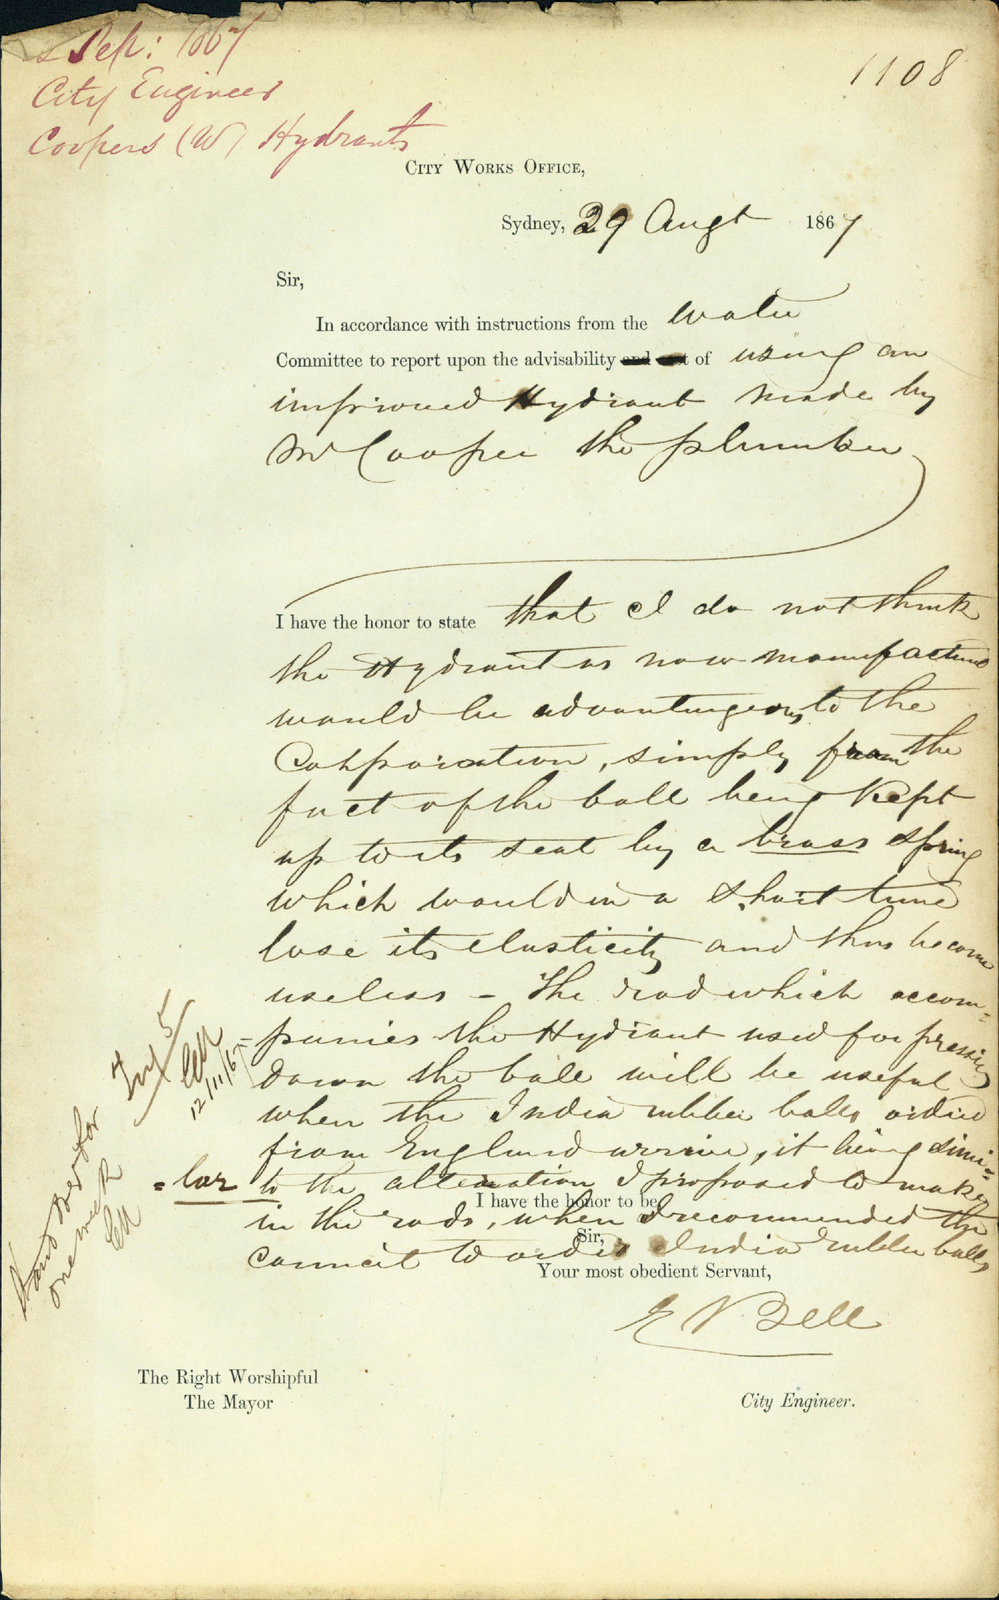 Sep: 1867
City Engineer
Coopers (W) Hydrants
1108
City Works Office,
Sydney, 29 Augt 1867
Sir,
In accordance with instructions from the Water
Committee to report upon the advisability and cost of using an
improved Hydrant made by
Mr Cooper the plumber
I have the honor to state that I do not think
the Hydrant as now manufactured
would be advantageous to the
Corporation, simply from the
fact of the ball being kept
up to its seat by a brass spring
which would in a short time
lose its elasticity and thus become
useless - The rod which accom-
=panies the Hydrant used for pressing
down the ball will be useful
when the India rubber balls ordered
from England arrive, it being simi=
=lar to the alteration I proposed to make
I have the honor to be,
in the rods, when I recommended the
Sir,
Council to order India rubber balls,
Your most obedient Servant,
E Bell
The Right Worshipful
The Mayor
City Engineer.
12/11/67
Stand over for
one week